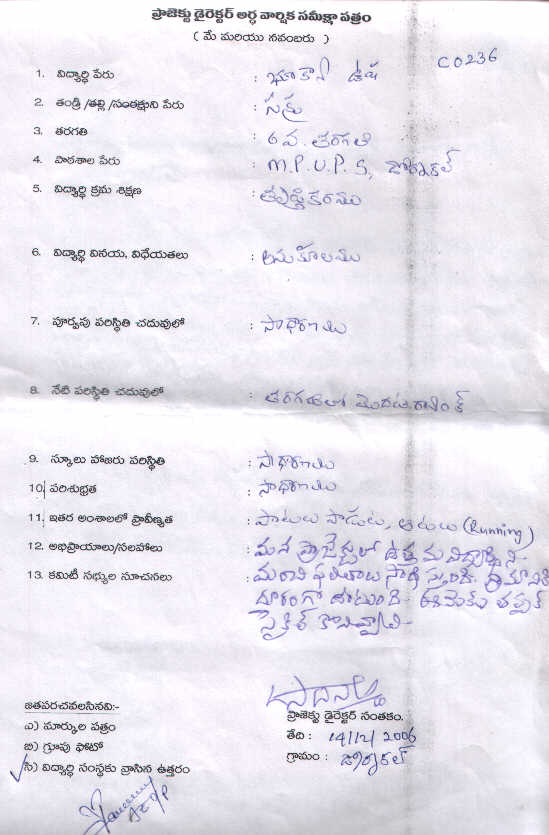 ప్రాజెక్టు డైరెక్టర్ అర్ధ వార్షిక సమీక్షా పత్రం
( మే మరియు నవంబరు )
C0236
1. విద్యార్థి పేరు : భూకానీ ఉష
2. తండ్రి /తల్లి /సంరక్షుని పేరు : సక్రు
3. తరగతి : 6వ. తరగతి
4. పాఠశాల పేరు : M.P.U.P.S, డోర్నకల్
5. విద్యార్థి క్రమ శిక్షణ : తృప్తికరము
6. విద్యార్థి వినయ, విధేయతలు : అనుకూలము
7. పూర్వపు పరిస్థితి చదువులో : సాధారణము
8. నేటి పరిస్థితి చదువులో : తరగతిలో మొదటి ర్యాంక్
9. స్కూలు హాజరు పరిస్థితి : సాధారణము
10. పరిశుభ్రత : సాధారణము
11. ఇతర అంశాలలో ప్రావీణ్యత : పాటలు పాడుట, ఆటలు (Running)
12. అభిప్రాయాలు/సలహాలు : మన ప్రాజెక్టులో ఉత్తమ విద్యార్థిని-
13. కమిటీ సభ్యుల సూచనలు : మంచి ఫలితాలు సాధిస్తుంది. గ్రామానికి
దూరంగా ఉంటుంది- ఈమెకు తప్పక
సైకిల్ కొనివ్వాలి-
జతపరచవలసినవి:-
ఎ) మార్కుల పత్రం
బి) గ్రూపు ఫోటో
సి) విద్యార్థి సంస్థకు వ్రాసిన ఉత్తరం
ప్రాజెక్టు డైరెక్టర్ సంతకం.
తేది : 14/12/2006
గ్రామం : డోర్నకల్